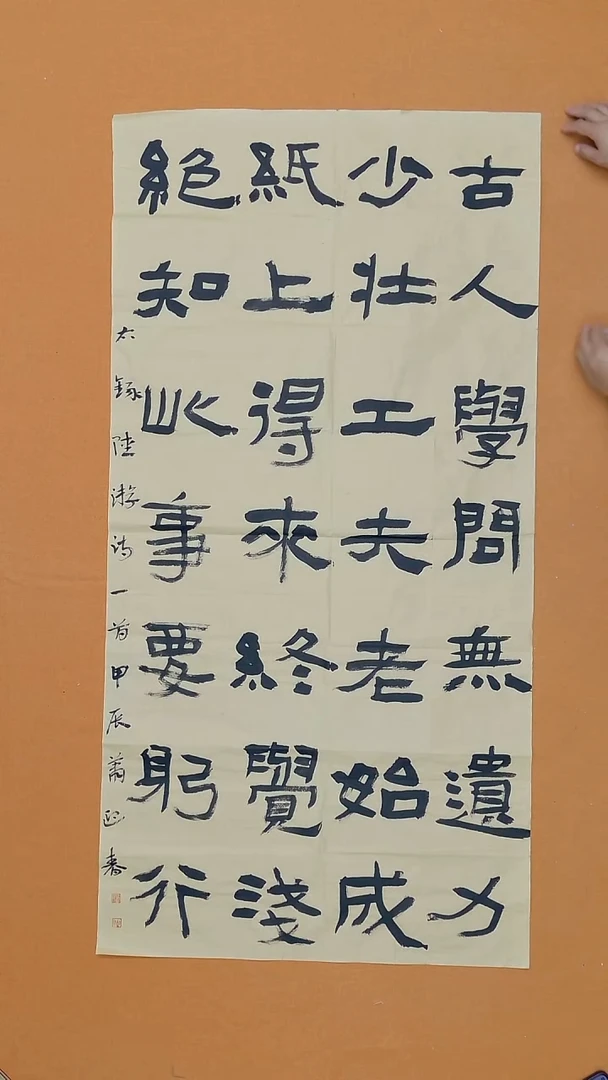 古人學問無遺力
少壯工夫老始成
紙上得來終覺淺
絶知此事要躬行
右錄陸游詩一首甲辰蕭春